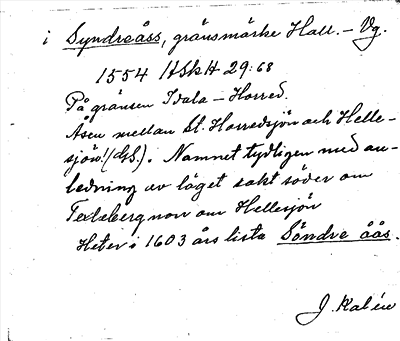 i Syndreåss, gränsmärke Hall. – Vg.
1554 HSkH 29:68
På gränsen Idala – Horred.
Åsen mellan St. Horredsjön och Helle-
sjön! (GS.). Namnet tydligen med an-
ledning av läget sakt söder om
norr om Hellesjön
Heter i 1603 års lista Söndre åås.
J. Kalén